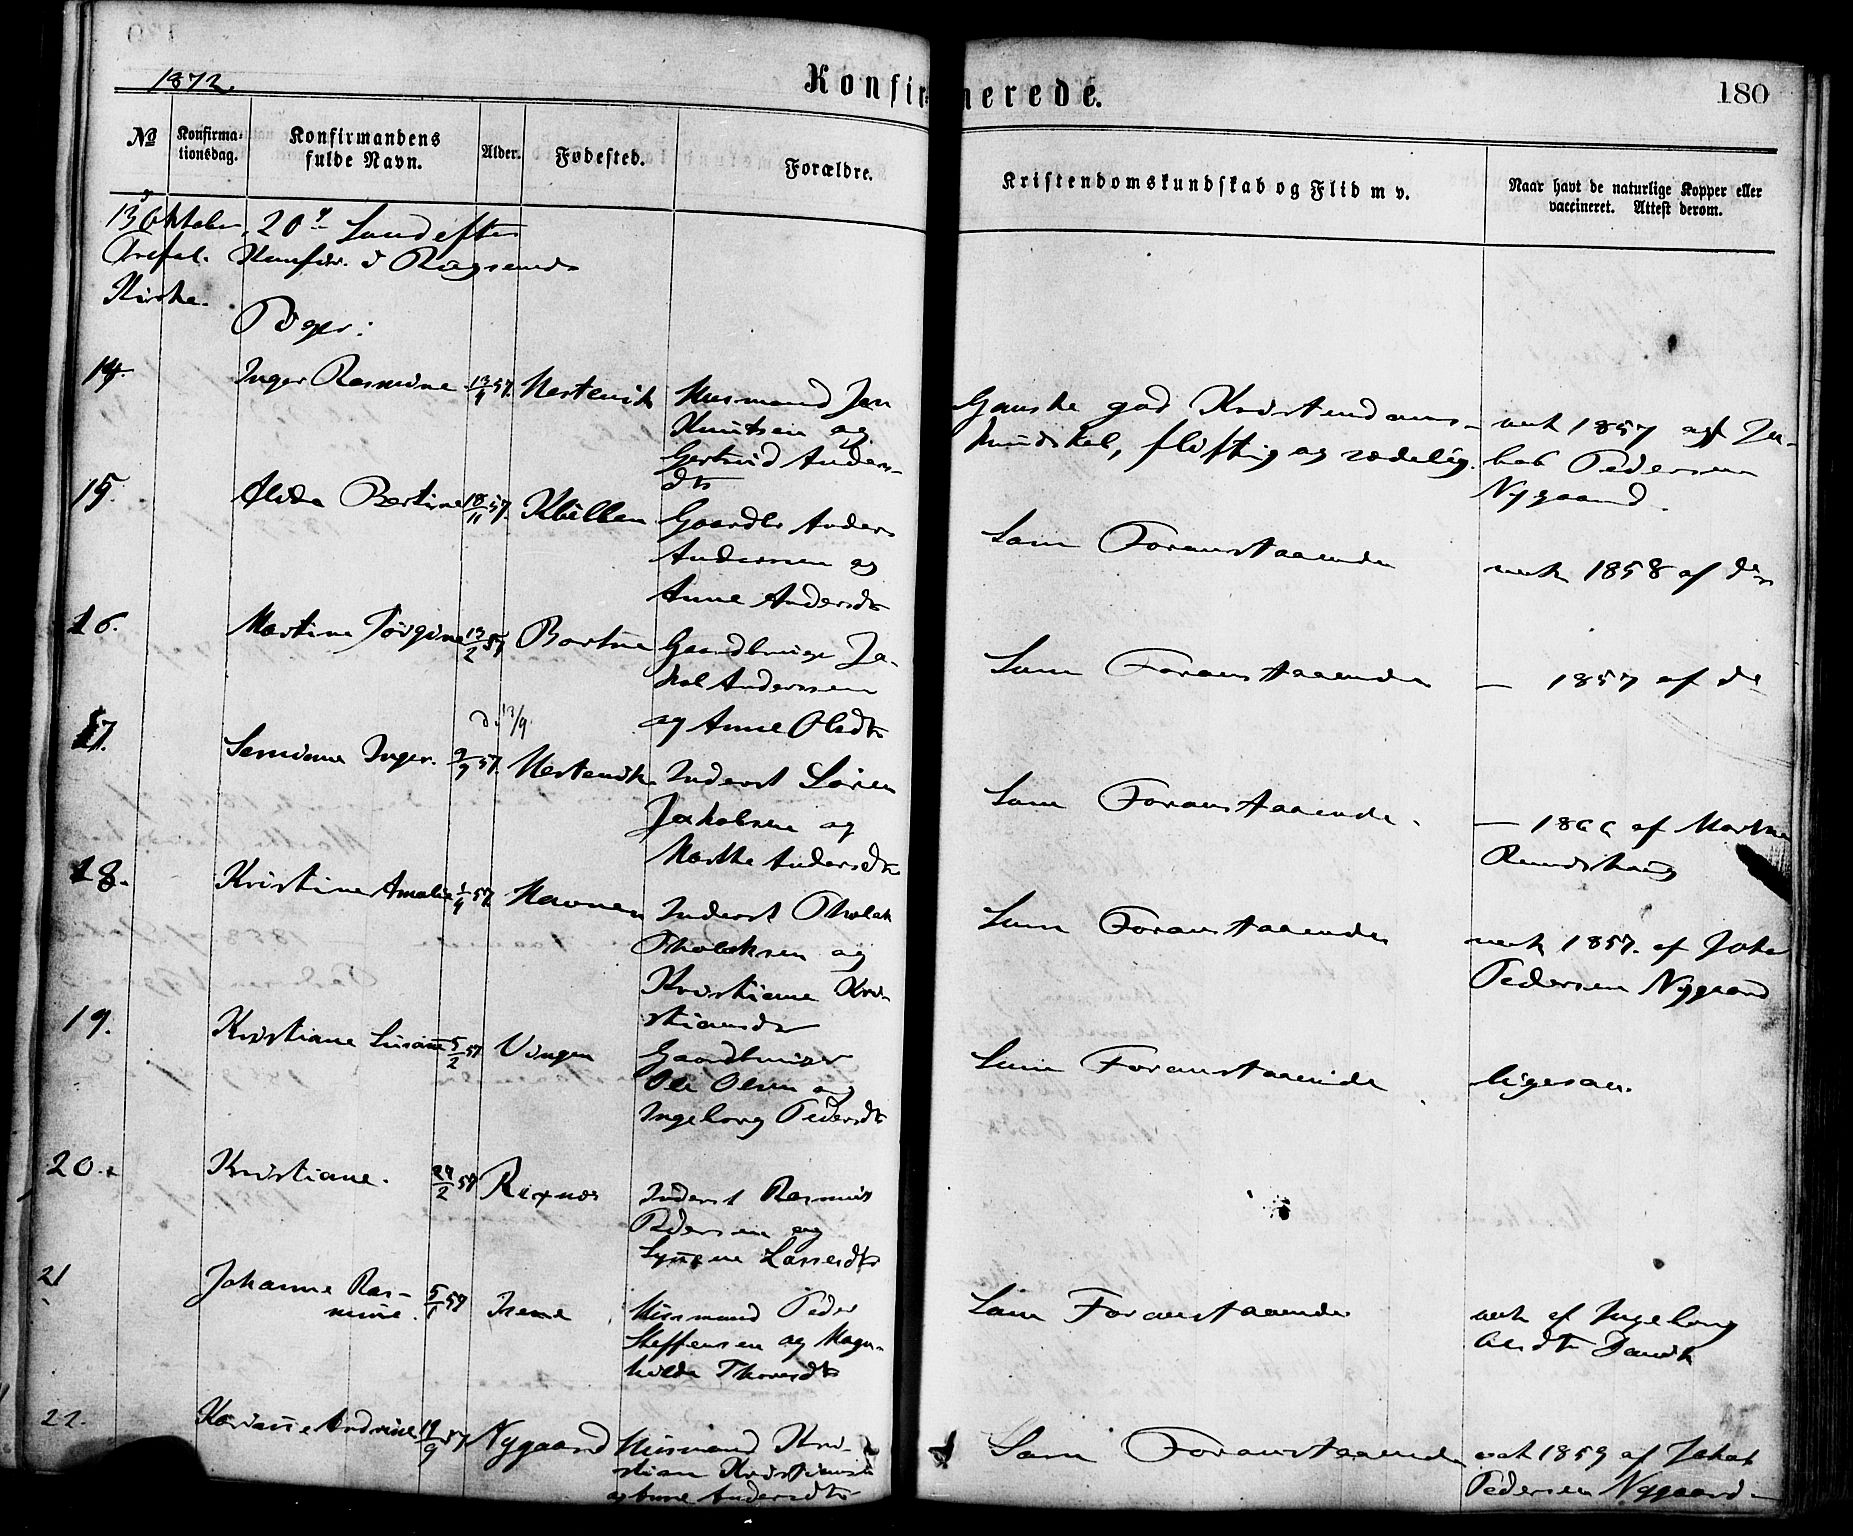 1872.
Konfirmerede.
180
No
Konfirma-
tionsdag.
Konfirmandens
fulde Navn.
Alder.
Fødested.
Forældre.
Kristendomskundskab og Flid m v.
Naar havt de naturlige Kopper eller
vaccineret. Attest derom.
13 Oktober, 20de Sønd efter
Trefol. Konfir. i
Kirke.
Piger:
14. Inger Rasmine 13/4 57. Husmand Jon
Knutsen og
Gertrud Anders-
dtr
Ganske god Kristendoms-
kundskab, flittig og sædelig.
vak 1857 af Ja-
kob Pedersen
Nygaard.
15. Alida Bertine 18/11 57. Gaardbr Anders
Andersen og
Anne Andersdtr
Som Foranstaaende
vak 1858 af ds
16. Martine Jørgine 13/2 57 Bortne Gaardbruger Ja-
kob Andersen
og Anne Olsdtr
Som Foranstaaende
— 1857 af ds
d. 13/9.
17. Inger. 9/9 57. Inderst Søren
Jakobsen og
Marthe Andersdtr
Som Foranstaaende.
— 1866 af
18. Kristine Amalie 1/4 57 Havnen Inderst
og
Kristiane Kri-
stiansdtr
Som Foranstaaende
vak 1857. af
Pedersen Nygaard
19. Kristiane 5/2 57 Vingen Gaardbruger
Ole Olsen og
Ingeborg Pedersdtr
Som Foranstaaende
ligesaa.
20. Kristiane. 24/2 57 Inderst Rasmus
Pedersen og
Larsdtr
21 Johanne Ras-
mine. 5/1 57 Husmand Peder
Steffensen og Magn-
hilde Thoresdtr
Som Foranstaaende
vak af Ingeborg
22. Andrine 19/9 57 Nygaard Husmand Kri-
stian Kristiansen
og Anne Andersdtr
Som Foranstaaende
vak 1859 af Jakob
Pedersen Nygaard